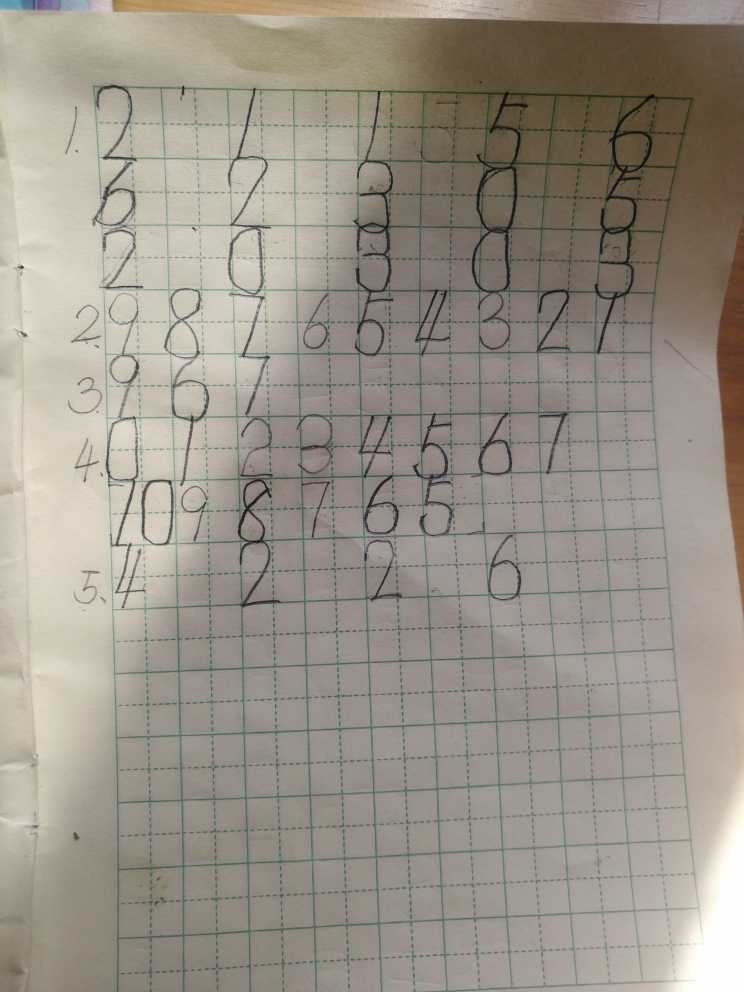 1. 2 1 1 5 6
6 2 3 0 5
2 0 3 0
2. 9 8 7 6 5 4 3 2 1
3. 9 6 7
4. 0 1 2 3 4 5 6 7
10 9 8 7 6 5
5. 4 2 2 6